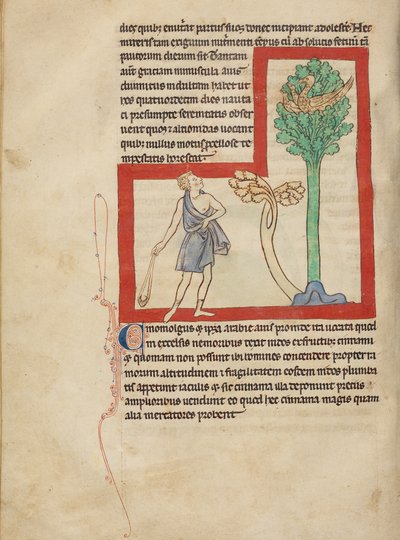 dies quib; enutrit partus suos donec incipiant adolesce. Hec
muneris tam exiguum nutrimenti tempus cum absolucio fetuum tam
paucorum dierum sit. Tantam
aut graciam minuscula auis
diuinitus indultam habet ut
hos quatuordecim dies nauta
ci presumpte serenitatis obser
uent quos alcionidas uocant
quib; nullus motus procellose te
mpestatis horescat.
Cinomolgus et ipsa arabie auis proinde ita uocata quod
in excelsis nemoribus texit nidos ex fructib; cinnami
et quoniam non possunt ibi homines conscendere propter ra
morum altitudinem et fragilitatem eosdem nidos plumba
tis appetunt iaculis et sic cinnama illa deponunt preciis
amplioribus uendunt eo quod hec cinnama magis quam
alia mercatores probent